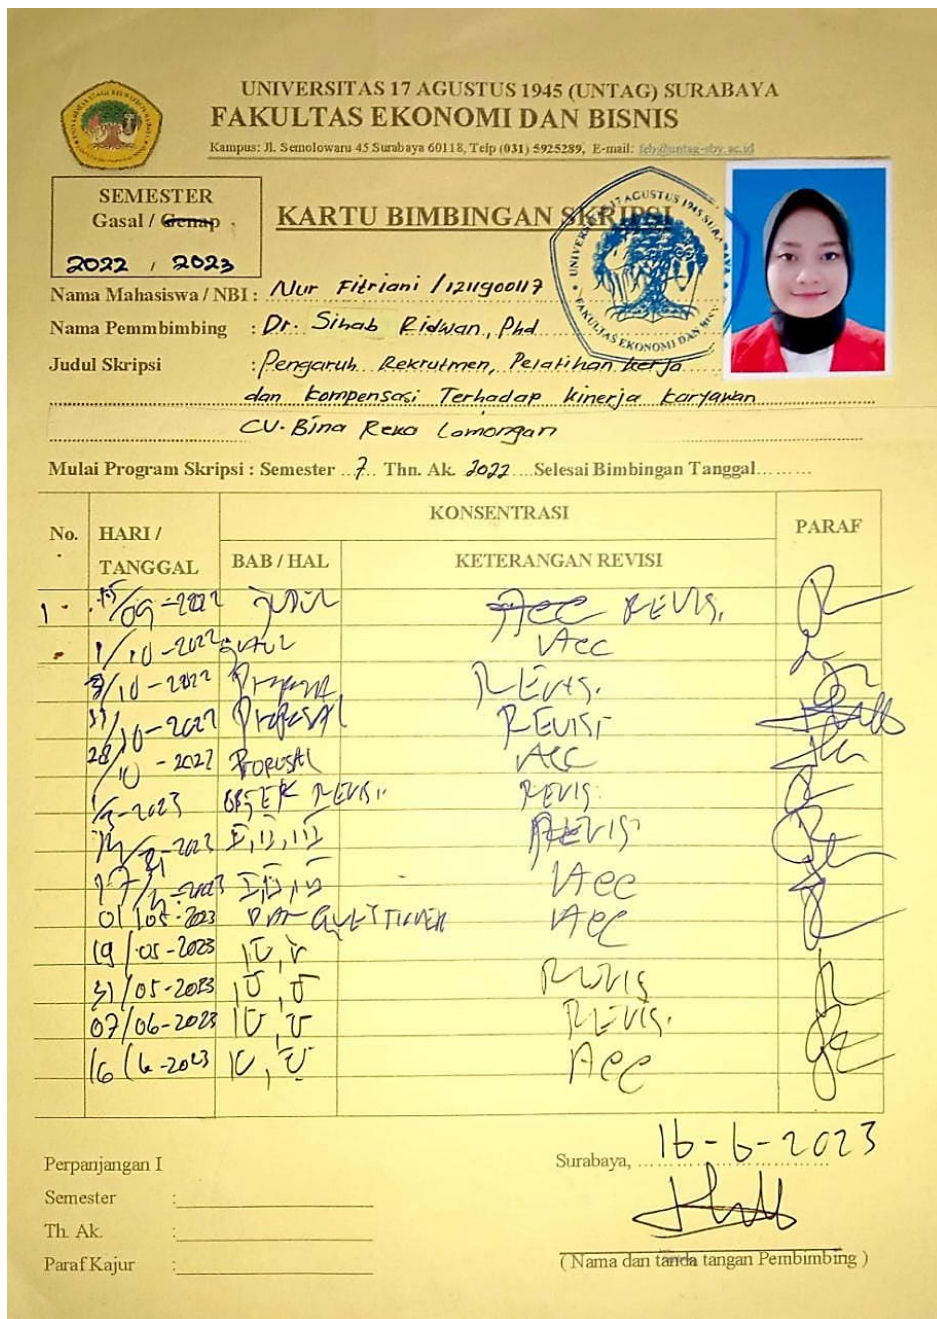 UNIVERSITAS 17 AGUSTUS 1945 (UNTAG) SURABAYA
FAKULTAS EKONOMI DAN BISNIS
Kampus: Jl. Semolowaru 45 Surabaya 60118, Telp (031) 5925289, E-mail: feb@untag-sby.ac.id
SEMESTER
Gasal / Genap
2022 / 2023
KARTU BIMBINGAN SKRIPSI
Nama Mahasiswa / NBI : Nur Fitriani / 1211900117
Nama Pemmbimbing : Dr. Sihab Ridwan, Phd
Judul Skripsi : Pengaruh Rekrutmen, Pelatihan kerja
dan Kompensasi Terhadap kinerja karyawan
CV. Bina Reka Lamongan
Mulai Program Skripsi : Semester 7 Thn. Ak. 2022 Selesai Bimbingan Tanggal
No. HARI / TANGGAL KONSENTRASI PARAF
BAB / HAL KETERANGAN REVISI
1. /09-2022 JUDUL Acc REVIS.
1/10-2022 JUDUL Acc
/10-2022 REVIS.
/10-2022 Proposal REVISI
28/10-2022 Proposal ACC
REVISI REVIS
I, II, III REVIS
I, II, III Acc
01/05-2023 Acc
19/05-2023 IV, V
31/05-2023 IV, V REVIS
07/06-2023 IV, V REVIS.
16/6-2023 IV, V Acc
Perpanjangan I
Semester :
Th. Ak. :
Paraf Kajur :
Surabaya, 16-6-2023
( Nama dan tanda tangan Pembimbing )